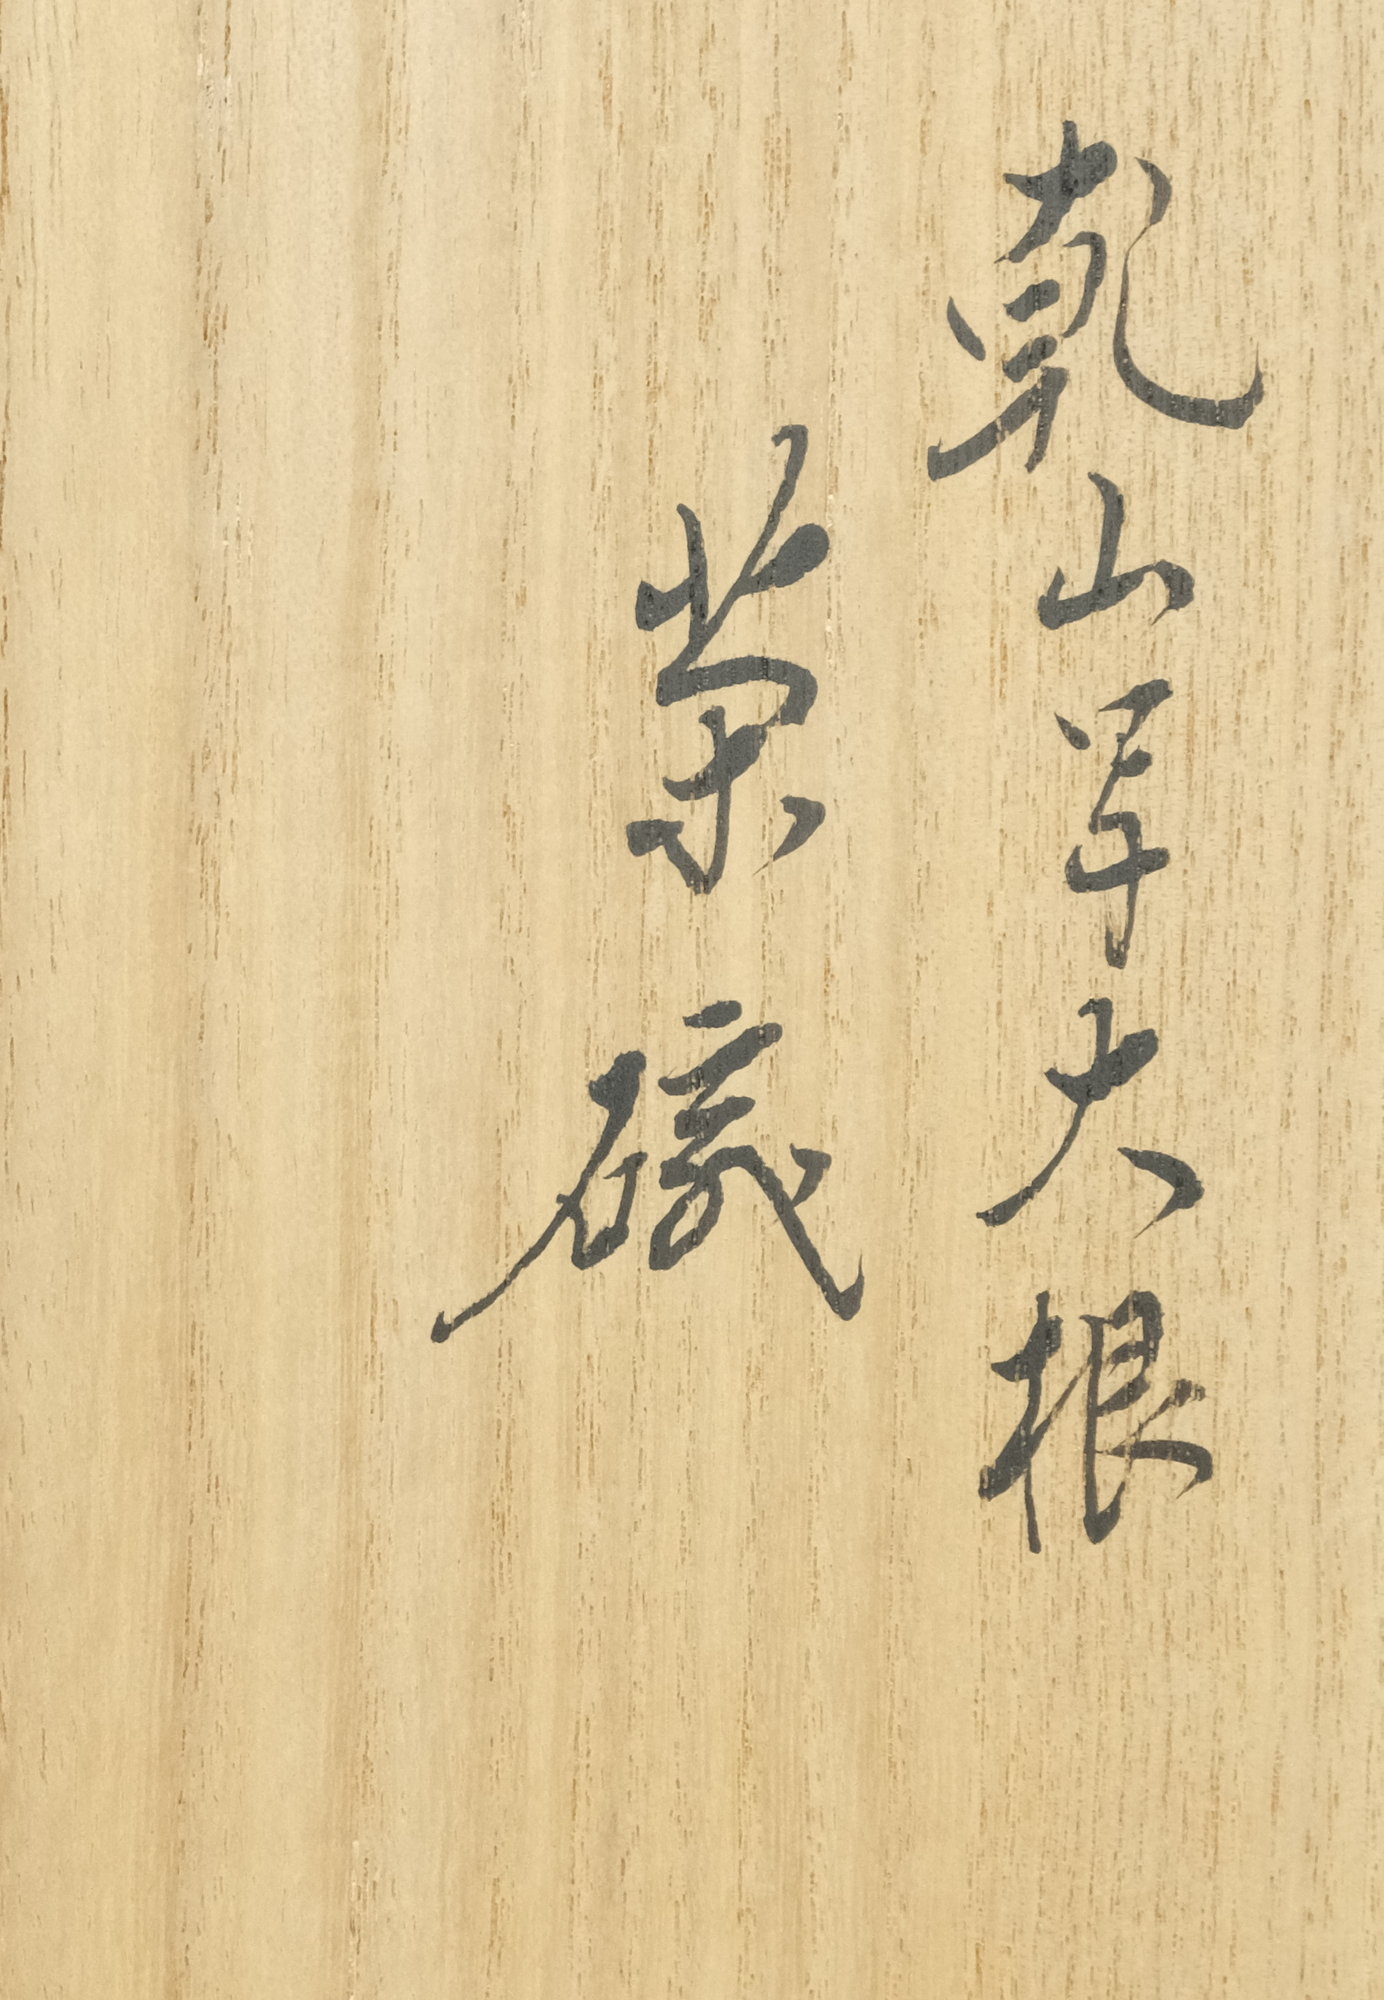 乾山写大根
茶碗